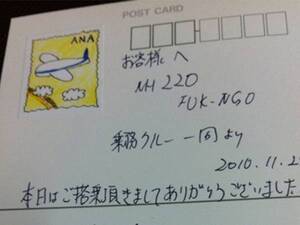 POST CARD
ANA
お客様へ
NH 220
FUK-NGO
乗務クルー一同より
2010.11.2
本日はご搭乗頂きましてありがとうございました